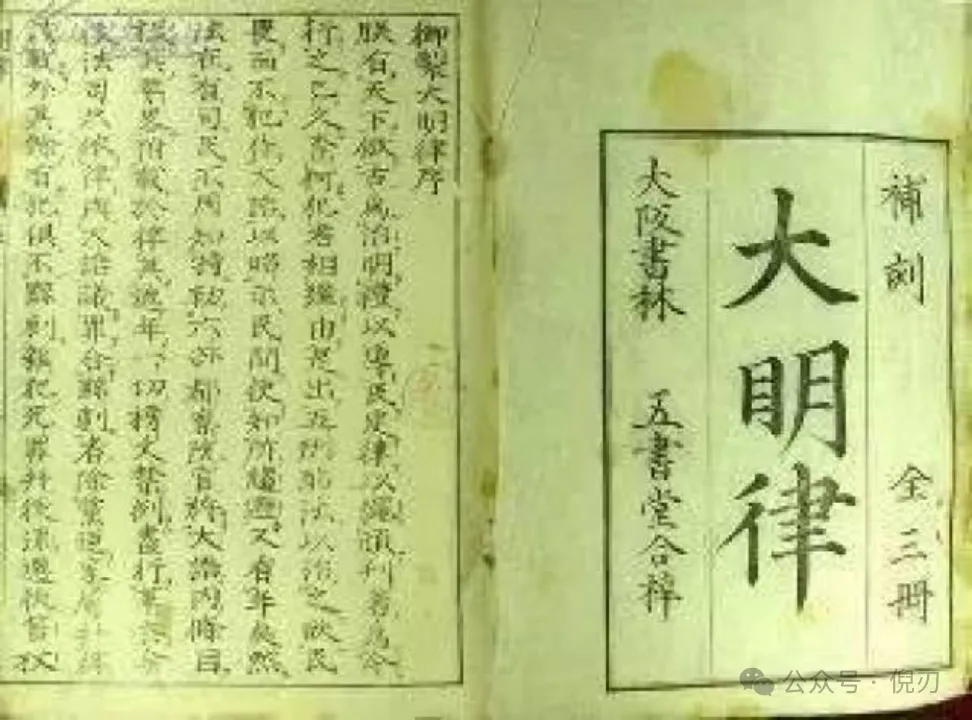 補刻 全三冊
大明律
大阪書林 五書堂合梓
御製大明律序
朕有天下倣古為治明禮以導民定律以繩頑刊著為令
行之已久奈何犯者相繼由是出五刑酷法以治之欲民
畏而不犯作大誥以昭示民間使知所趨避又有年矣然
法在有司民不周知特敕六部都察院官將大誥內條目
撮其要畧附載於律其遞年一切榜文禁例盡行革去今
後法司只依律與大誥議罪合黥刺者除黨逆家屬并律
該載外其餘有犯俱不黥刺雜犯死罪并徒流遷徙笞杖
公众号·倪刃